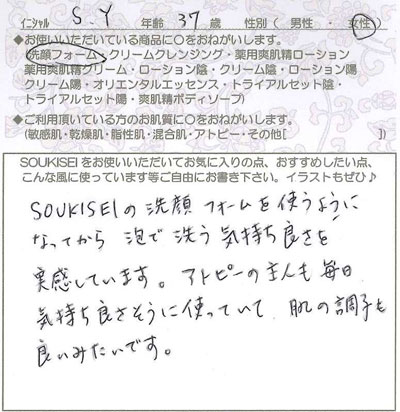 ｲﾆｼｬﾙ S.Y 年齢 37 歳 性別（ 男性 ・ 女性 ）
◆お使いいただいている商品に〇をおねがいします。
（洗顔フォーム・クリームクレンジング・薬用爽肌精ローション
薬用爽肌精クリーム・ローション陰・クリーム陰・ローション陽
クリーム陽・オリエンタルエッセンス・トライアルセット陰・
トライアルセット陽・爽肌精ボディソープ）
◆ご利用頂いている方のお肌質に〇をおねがいします。
（敏感肌・乾燥肌・脂性肌・混合肌・アトピー・その他[ ]）
SOUKISEIをお使いいただいてお気に入りの点、おすすめしたい点、
こんな風に使っています等ご自由にお書き下さい。イラストもぜひ♪
SOUKISEIの洗顔フォームを使うように
なってから 泡で洗う気持ち良さを
実感しています。アトピーの主人も毎日
気持ち良さそうに使っていて 肌の調子も
良いみたいです。